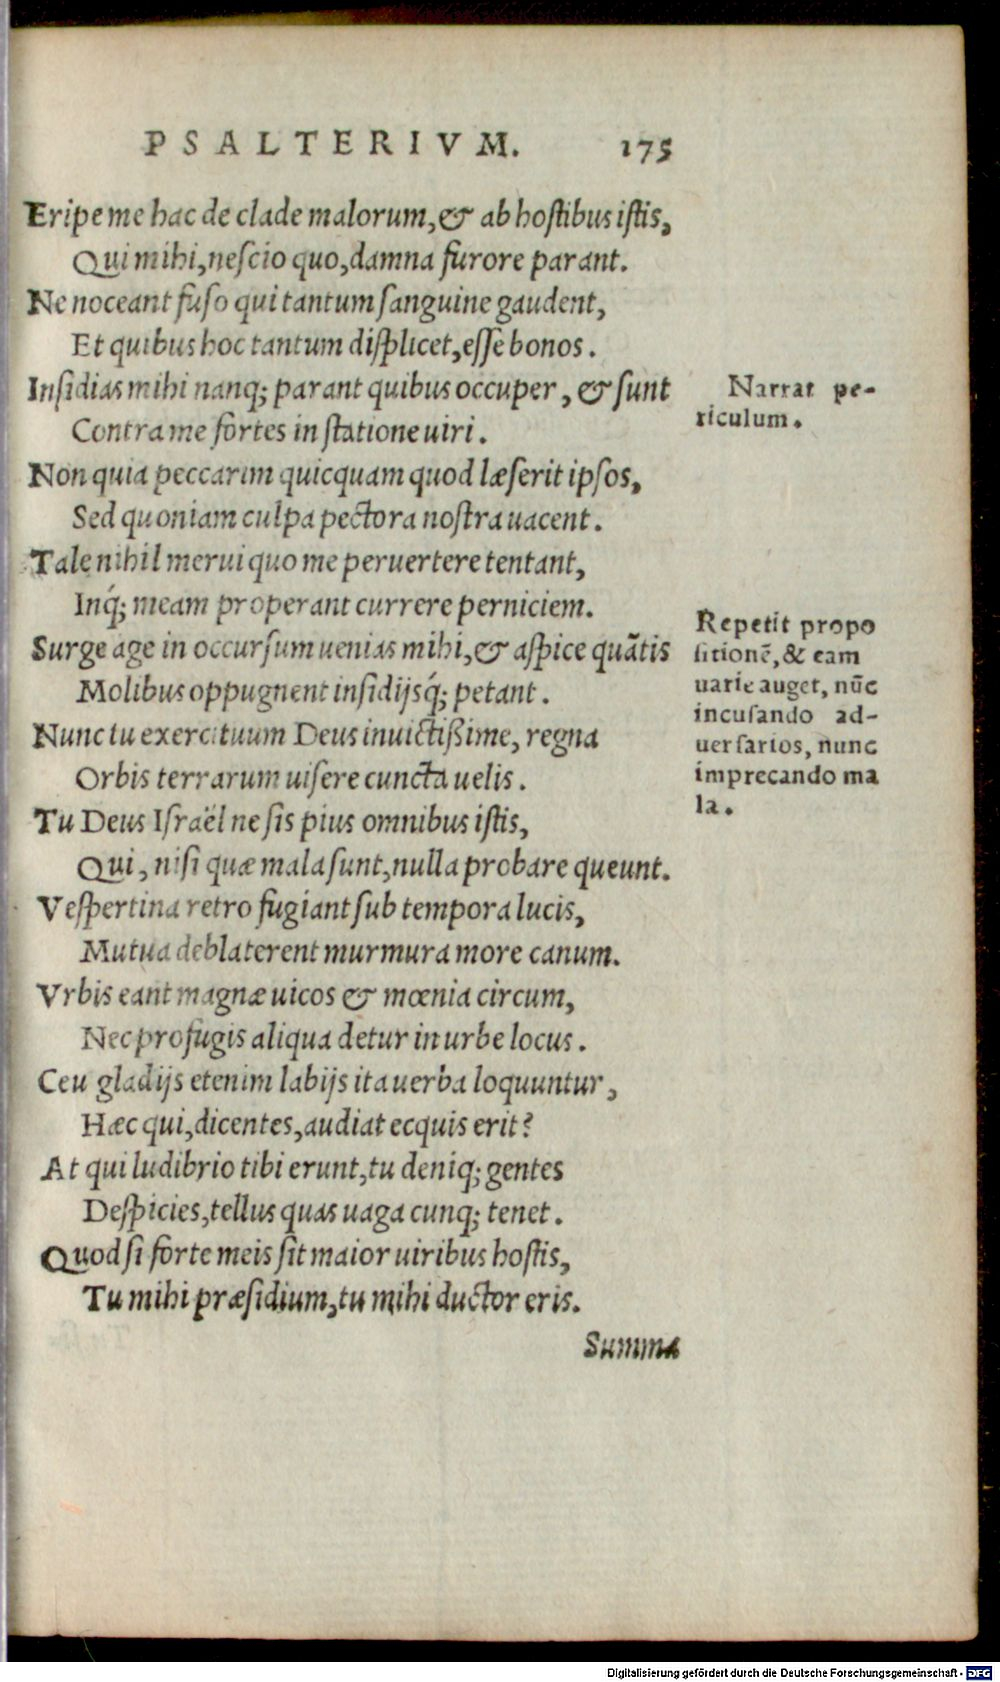 PSALTERIVM. 175
Eripe me hac de clade malorum, & ab hostibus istis,
Qui mihi, nescio quo, damna furore parant.
Ne noceant fuso qui tantum sanguine gaudent,
Et quibus hoc tantum displicet, esse bonos.
Insidias mihi nanq; parant quibus occuper, & sunt
Contra me fortes in statione uiri.
Narrat pe-
riculum.
Non quia peccarim quicquam quod læserit ipsos,
Sed quoniam culpa pectora nostra uacent.
Tale nihil merui quo me peruertere tentant,
Inq́; meam properant currere perniciem.
Surge age in occursum uenias mihi, & aspice quãtis
Molibus oppugnent insidijsq́; petant.
Nunc tu exercituum Deus inuictißime, regna
Orbis terrarum uisere cuncta uelis.
Repetit propo
sitionẽ, & eam
uarie auget, nũc
incusando ad-
uersarios, nunc
imprecando ma
la.
Tu Deus Israël ne sis pius omnibus istis,
Qui, nisi quæ mala sunt, nulla probare queunt.
Vespertina retro fugiant sub tempora lucis,
Mutua deblaterent murmura more canum.
Vrbis eant magnæ uicos & mœnia circum,
Nec profugis aliqua detur in urbe locus.
Ceu gladijs etenim labijs ita uerba loquuntur,
Hæc qui, dicentes, audiat ecquis erit?
At qui ludibrio tibi erunt, tu deniq; gentes
Despicies, tellus quas uaga cunq; tenet.
Quod si forte meis sit maior uiribus hostis,
Tu mihi præsidium, tu mihi ductor eris.
Summa
Digitalisierung gefördert durch die Deutsche Forschungsgemeinschaft - DFG